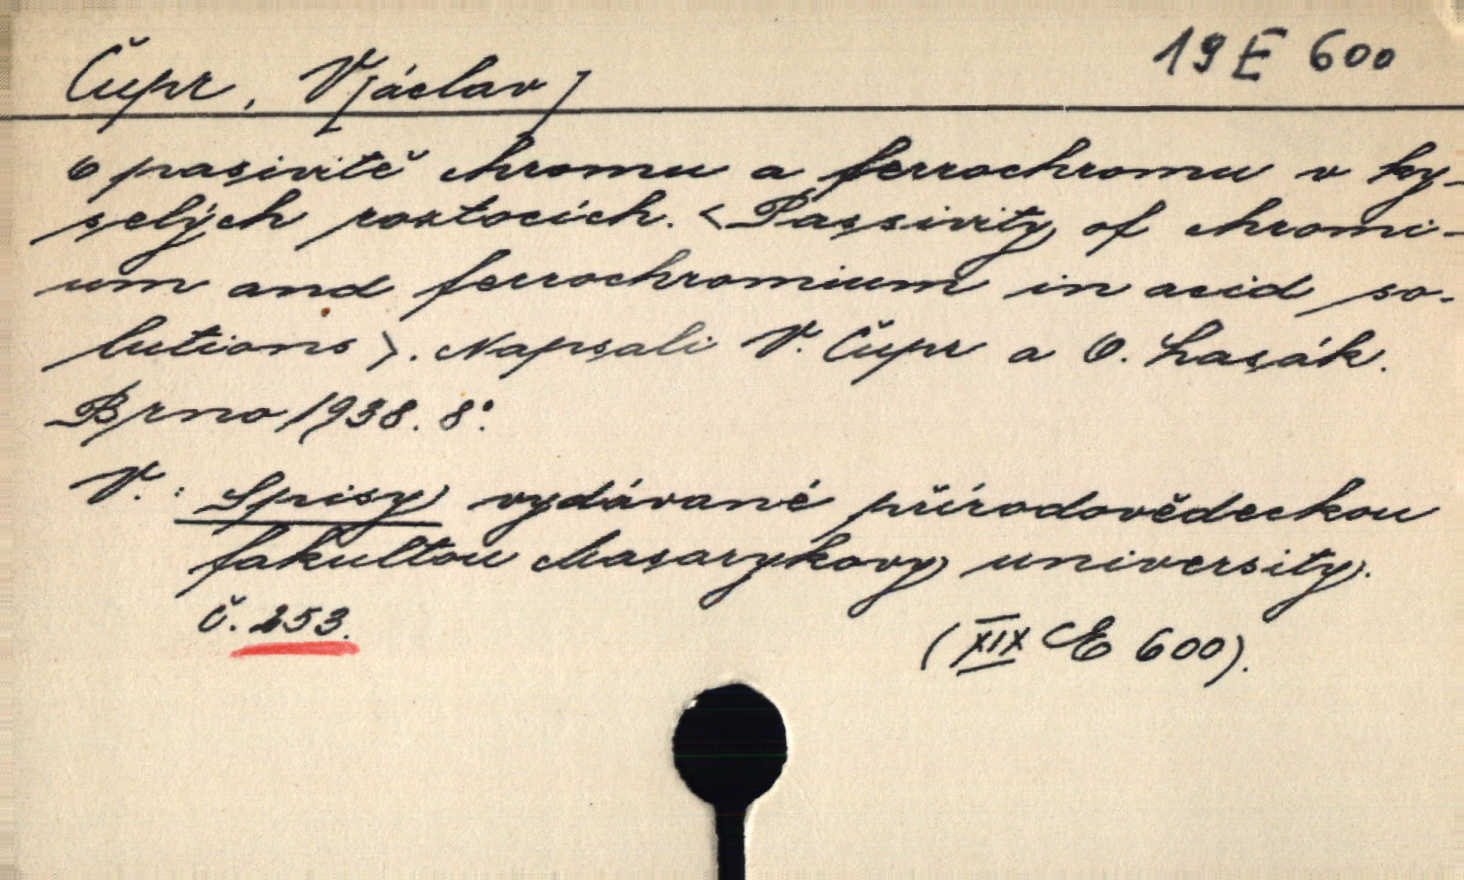 19 E 600
Čupr, V[áclav]
O pasivitě chromu a ferrochromu v ky-
selých roztocích. <Passivity of chromi-
um and ferrochromium in acid so-
lutions>. Napsali V. Čupr a O. Lasák.
Brno 1938. 8°.
V.: Spisy vydávané přírodovědeckou
fakultou Masarykovy university.
č. 253.
(XIX E 600).